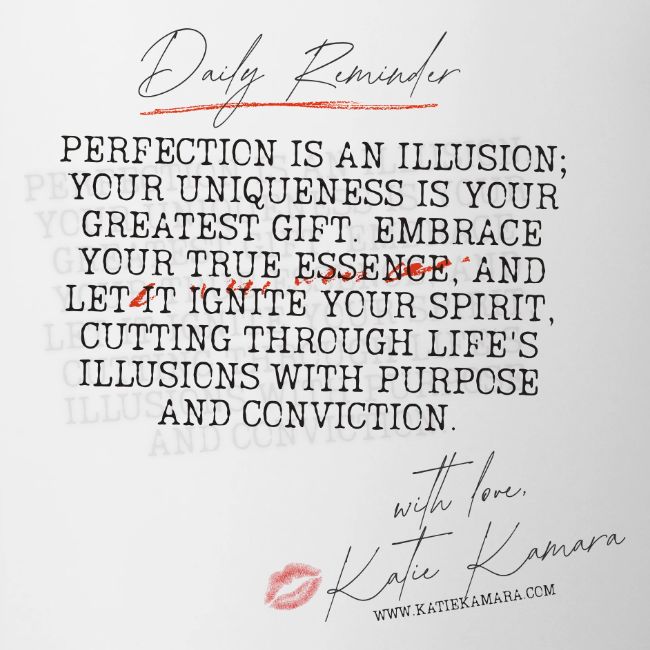 Daily Reminder
PERFECTION IS AN ILLUSION;
YOUR UNIQUENESS IS YOUR
GREATEST GIFT. EMBRACE
YOUR TRUE ESSENCE, AND
LET IT IGNITE YOUR SPIRIT,
CUTTING THROUGH LIFE'S
ILLUSIONS WITH PURPOSE
AND CONVICTION.
with love,
Katie Kamara
WWW.KATIEKAMARA.COM